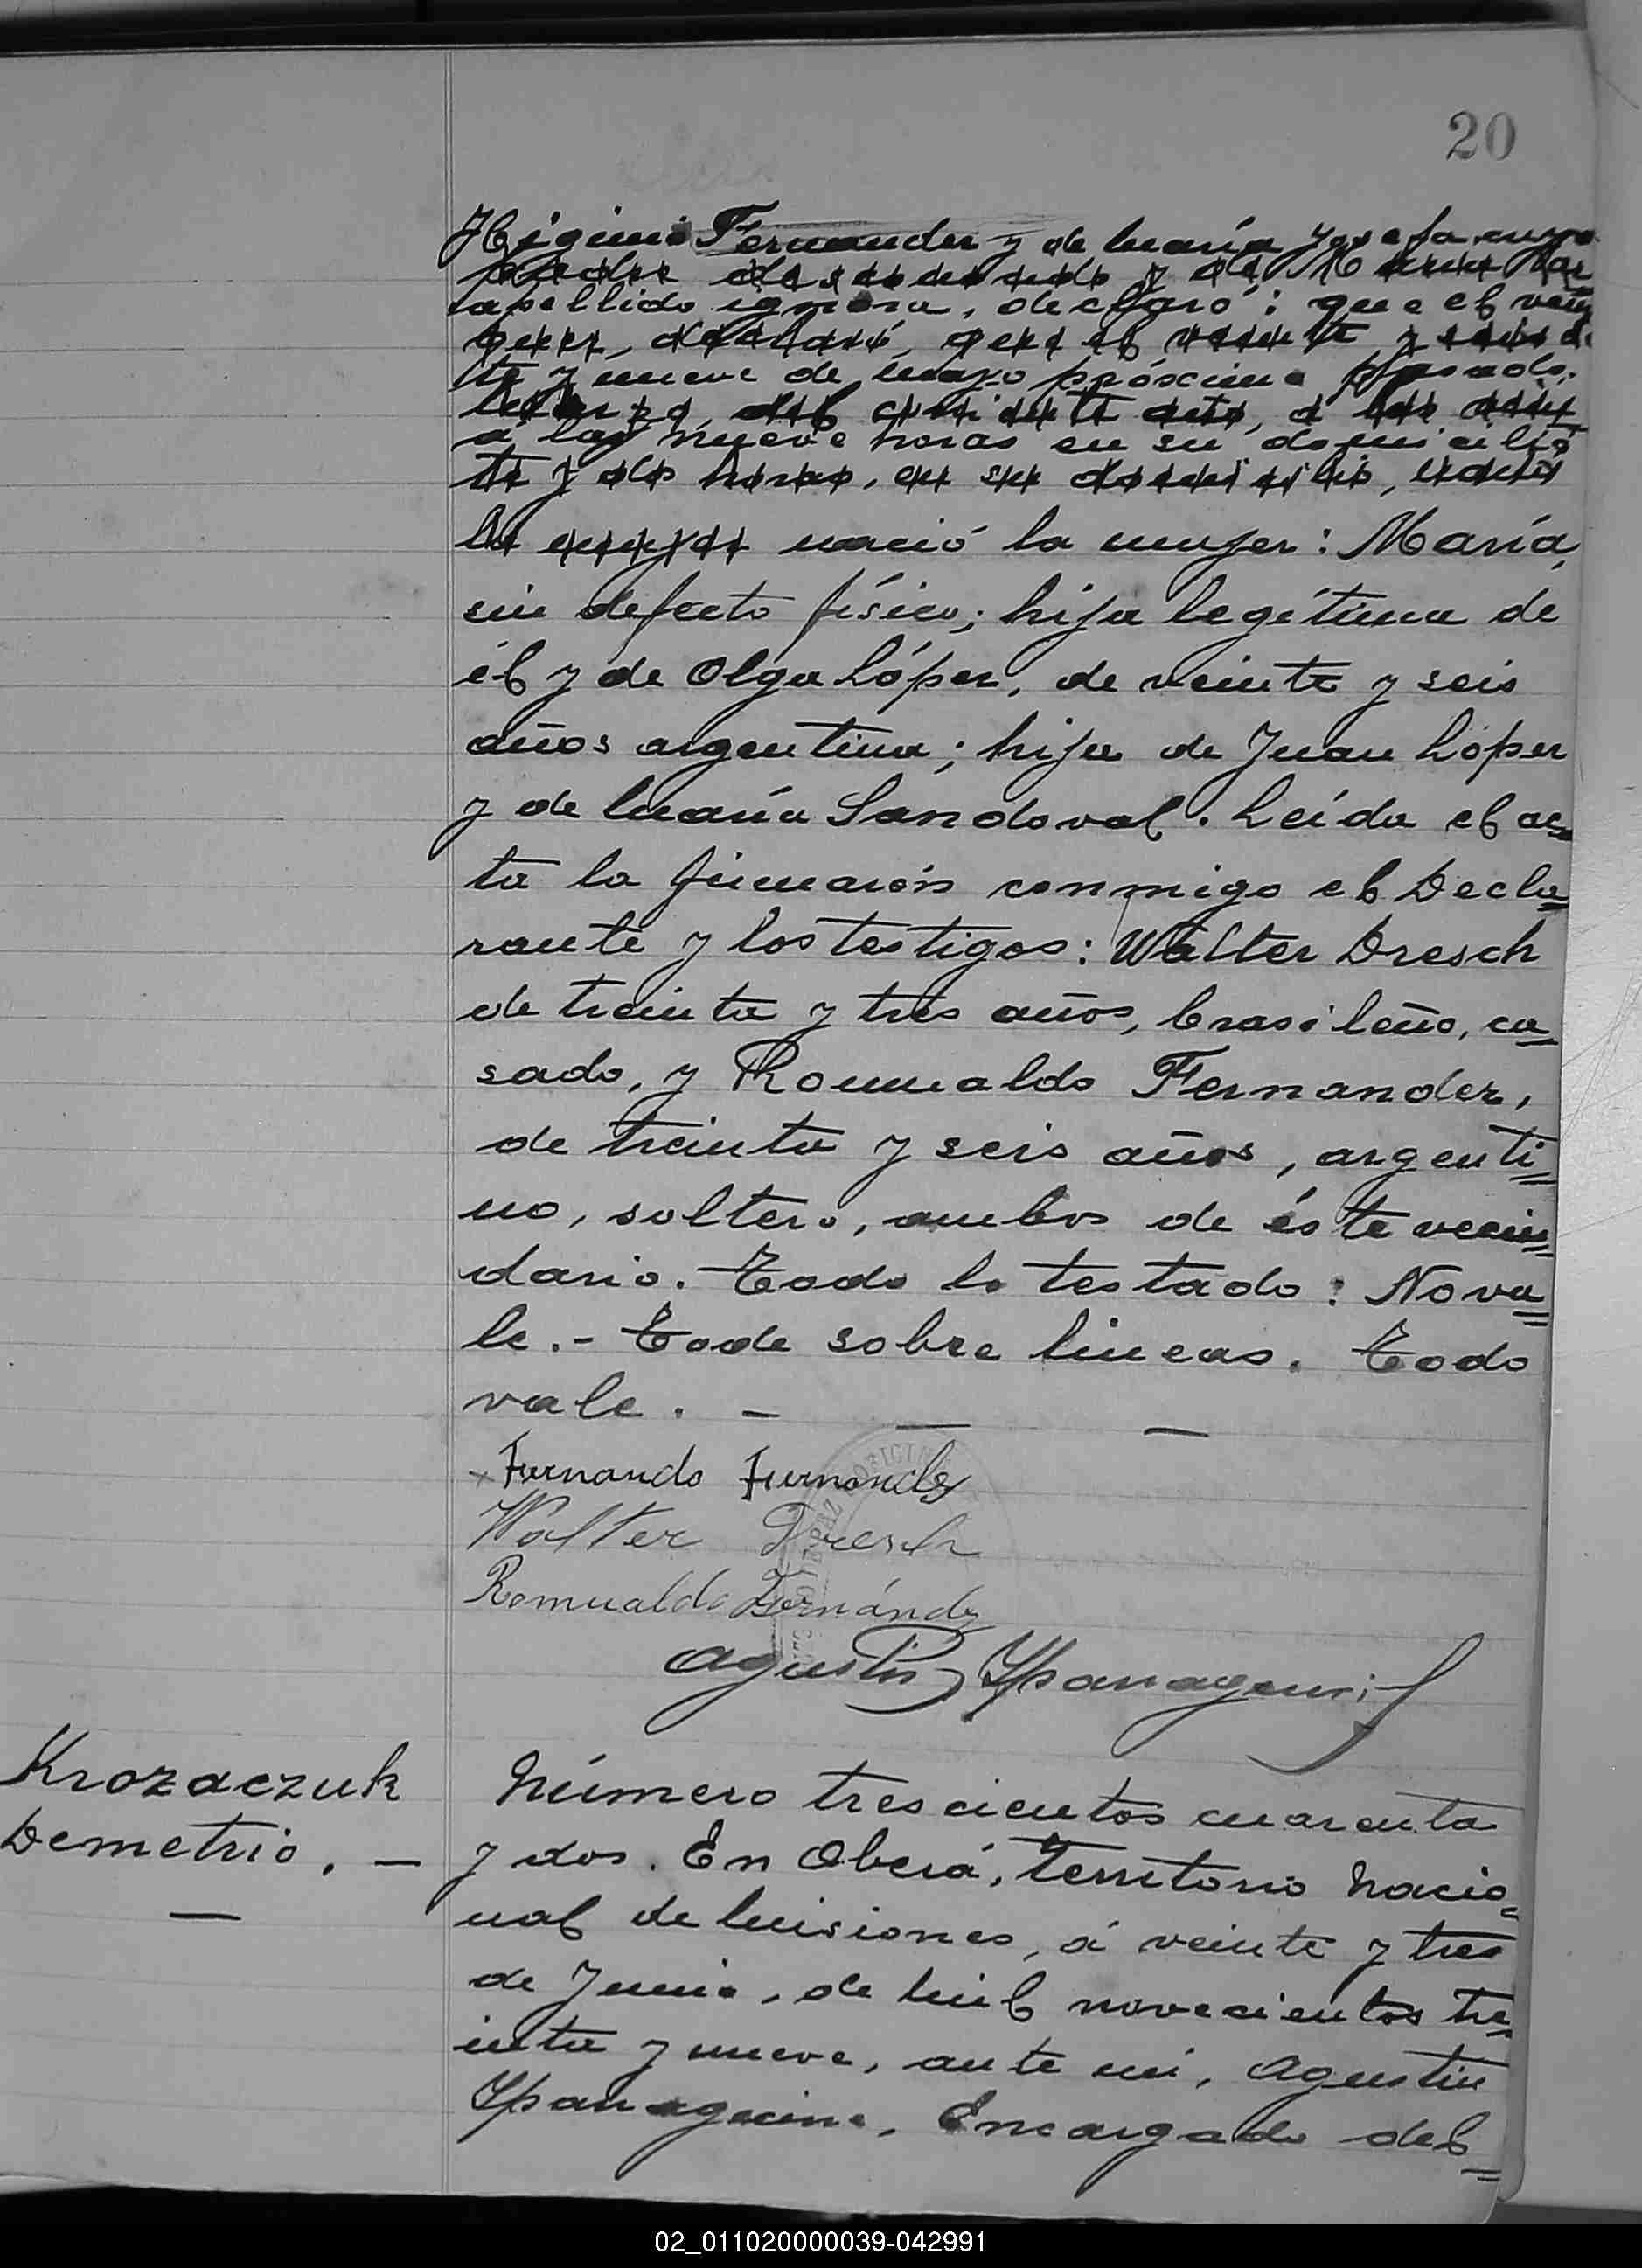 20
Higinio Fernandez y de María Josefa, cuyo
apellido ignora, declaró: que el vein
te y nueve de mayo próximo pasado,
a las nueve horas en su domicilio
nació la mujer: María,
sin defecto físico; hija legítima de
él y de Olga López, de veinte y seis
años argentina; hija de Juan López
y de María Sandoval. Leída el ac=
ta la firmarón conmigo el Decla=
rante y los testigos: Walter Dresch
de treinta y tres años, brasileño, ca=
sado, y Romualdo Fernandez,
de treinta y seis años, argenti=
no, soltero, ambos de éste vecin=
dario. Todo lo testado: No va=
le.- Todo sobre lineas. Todo
vale. - — —
x Fernando Fernandez
Walter Dresch
Romualdo Fernández
Agustin Spanagenis
Krozaczuk
Demetrio. —
—
Número trescientos cuarenta
y dos. En Oberá, Territorio Nacio=
nal de Misiones, á veinte y tres
de Junio, de mil novecientos tre=
inta y nueve, ante mi, Agustin
Encargado del=
02_011020000039-042991